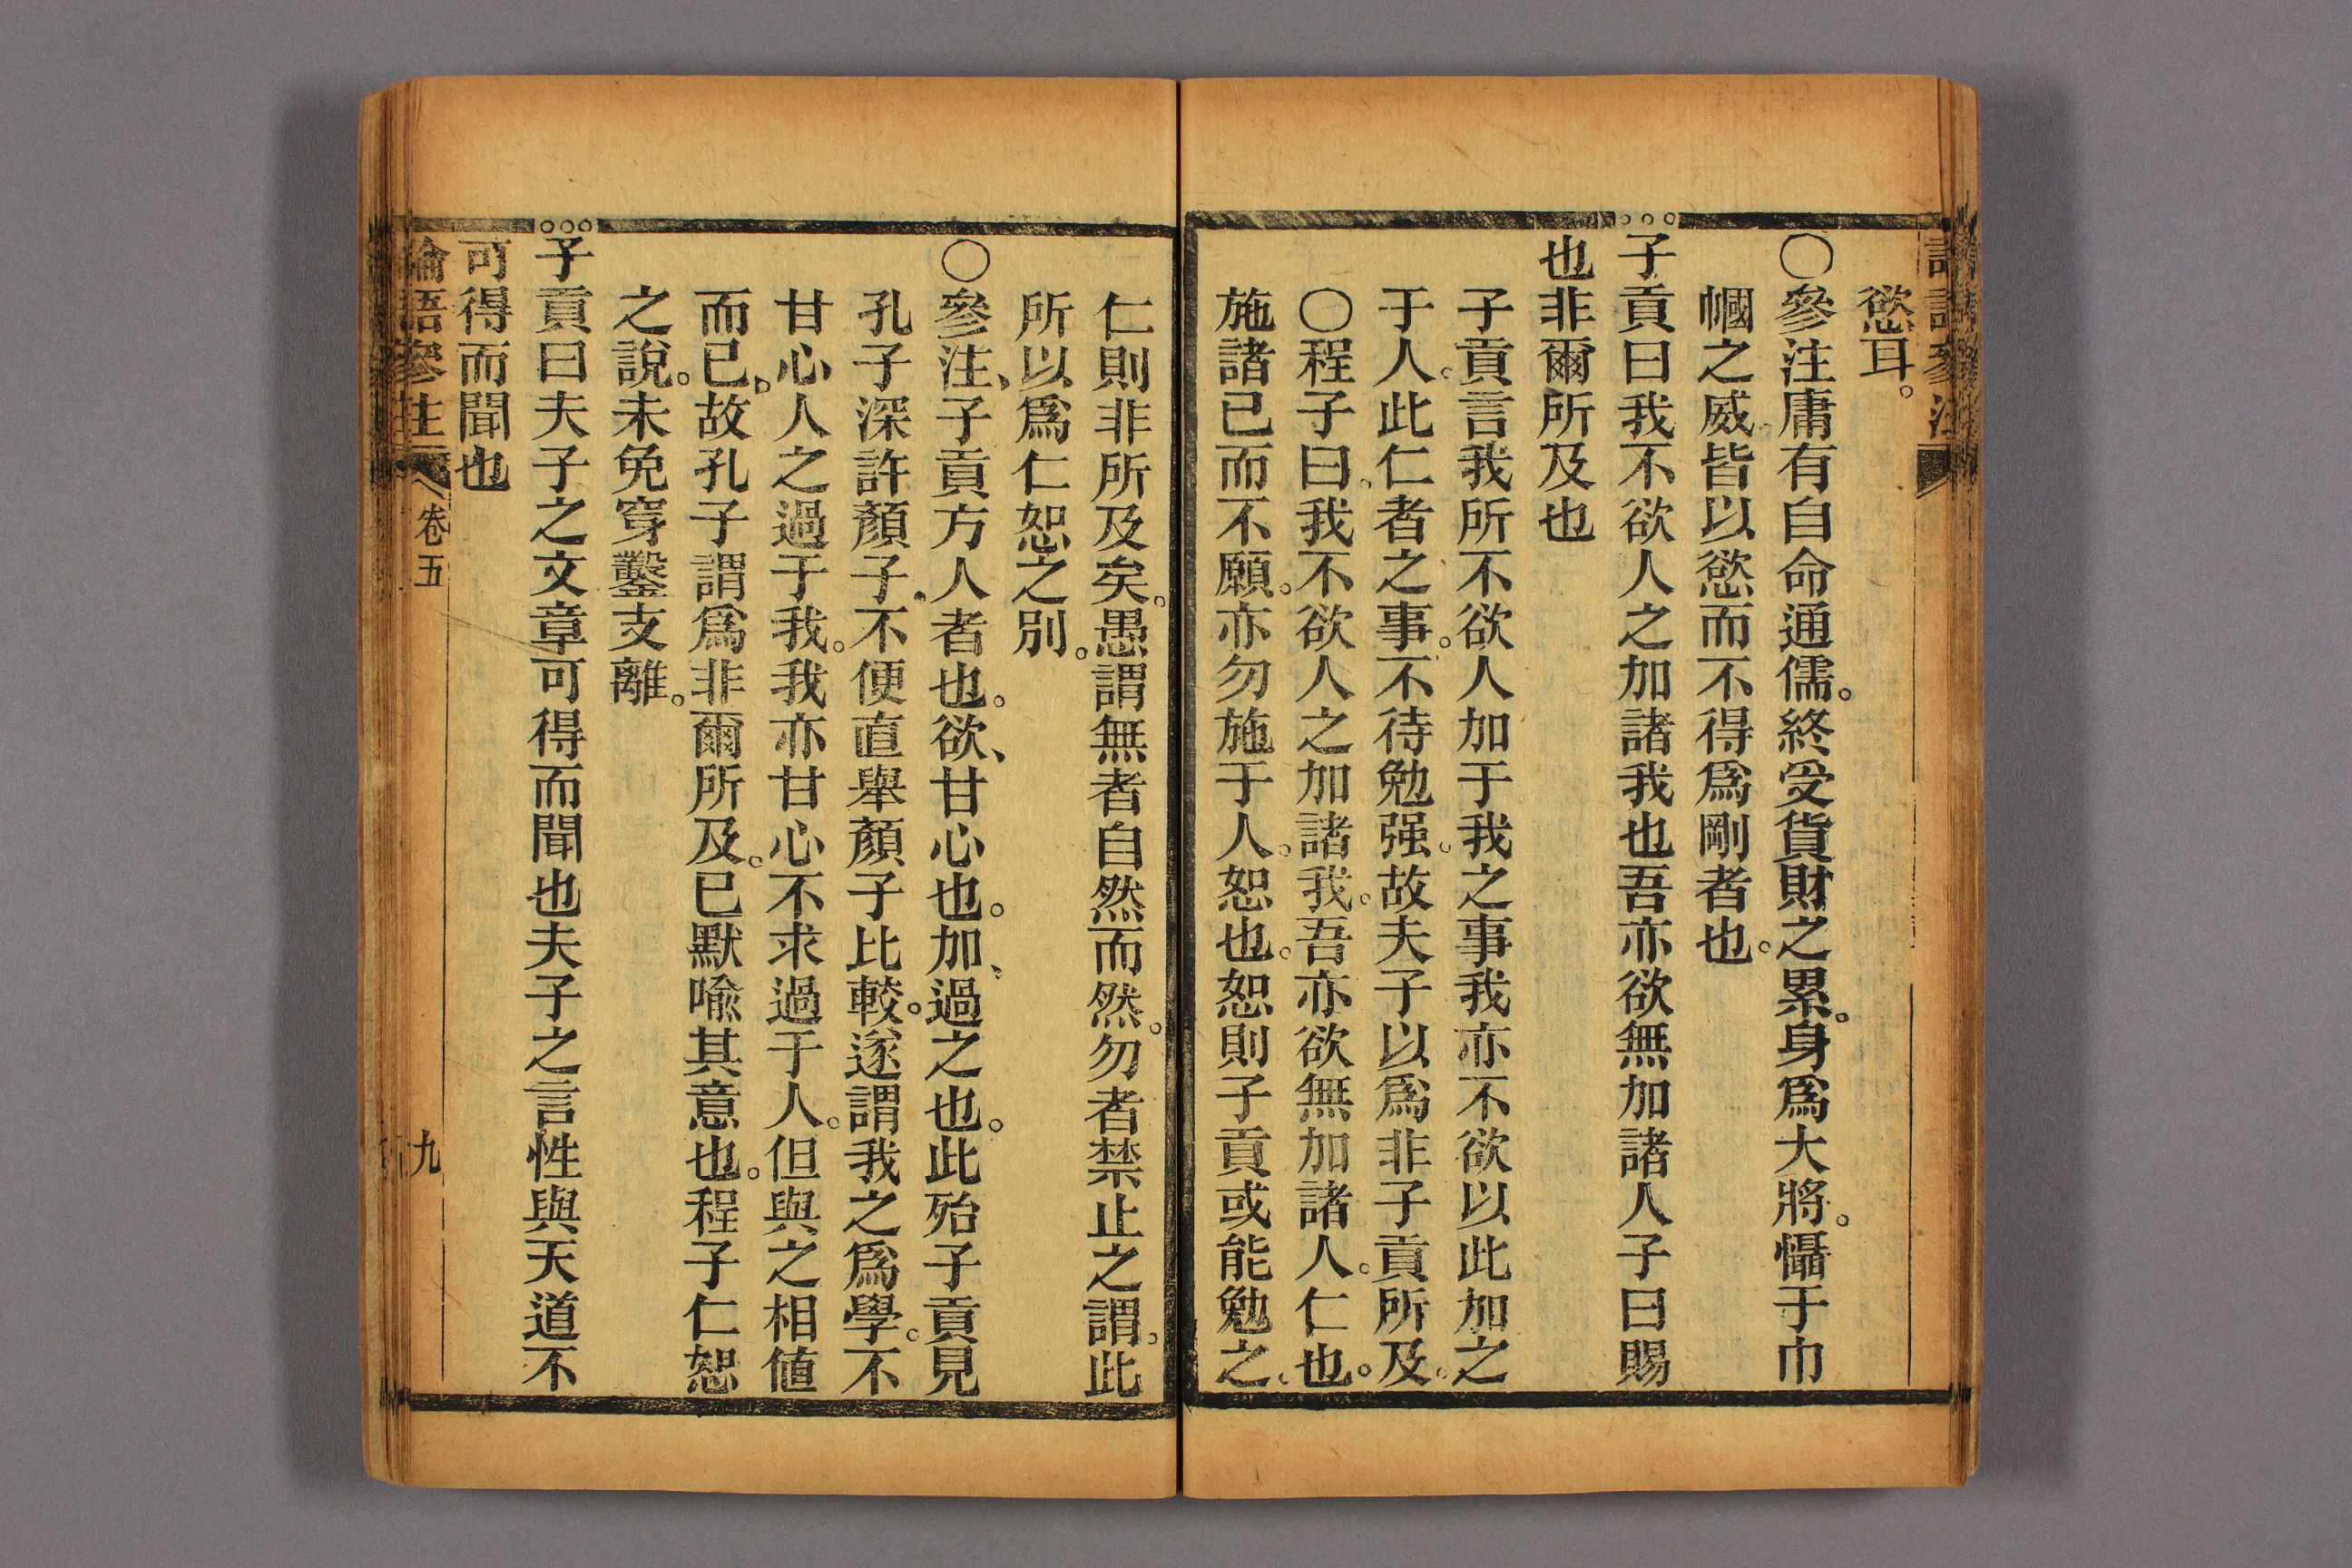 慾耳。
〇參注庸有自命通儒。終受貨財之累。身爲大將。懾于巾
幗之威。皆以慾而不得爲剛者也。
子貢曰我不欲人之加諸我也吾亦欲無加諸人子曰賜
也非爾所及也
子貢言我所不欲人加于我之事我亦不欲以此加之
于人。此仁者之事。不待勉强。故夫子以爲非子貢所及。
〇程子曰。我不欲人之加諸我。吾亦欲無加諸人。仁也。
施諸己而不願。亦勿施于人。恕也。恕則子貢或能勉之、
仁則非所及矣。愚謂無者自然而然。勿者禁止之謂。此
所以爲仁恕之別。
〇參注、子貢方人者也。欲、甘心也。加、過之也。此殆子貢見
孔子深許顏子、不便直舉顏子比較。遂謂我之爲學。不
甘心人之過于我。我亦甘心不求過于人。但與之相値
而已。故孔子謂爲非爾所及。已默喩其意也。程子仁恕
之說。未免穿鑿支離。
子貢曰夫子之文章可得而聞也夫子之言性與天道不
可得而聞也
論語參注 卷五 九